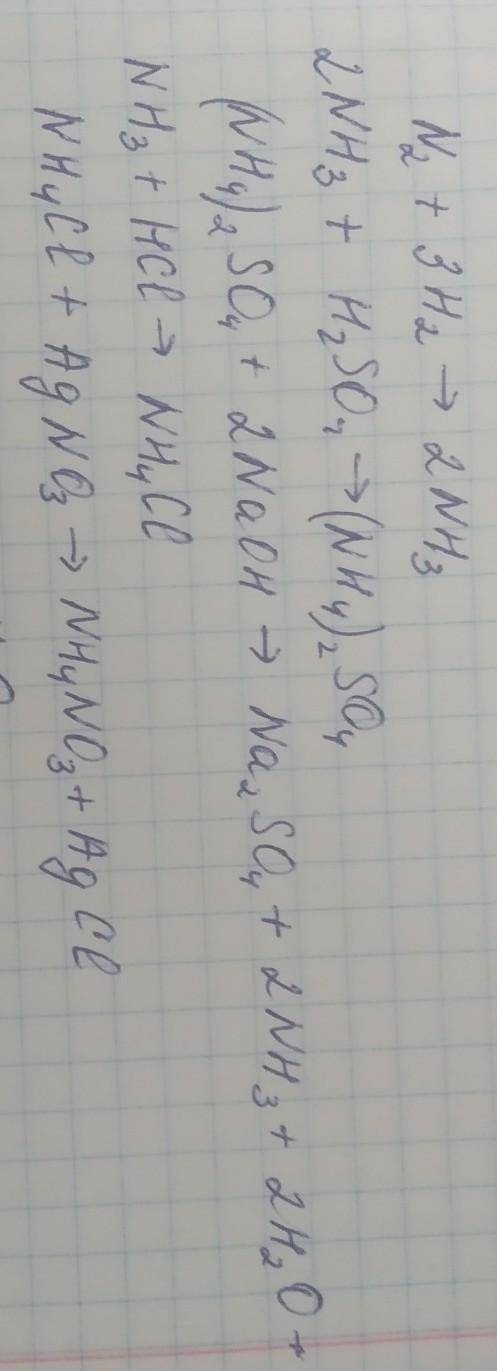 N₂ + 3H₂ → 2NH₃
2NH₃ + H₂SO₄ → (NH₄)₂SO₄
(NH₄)₂SO₄ + 2NaOH → Na₂SO₄ + 2NH₃ + 2H₂O +
NH₃ + HCl → NH₄Cl
NH₄Cl + AgNO₃ → NH₄NO₃ + AgCl